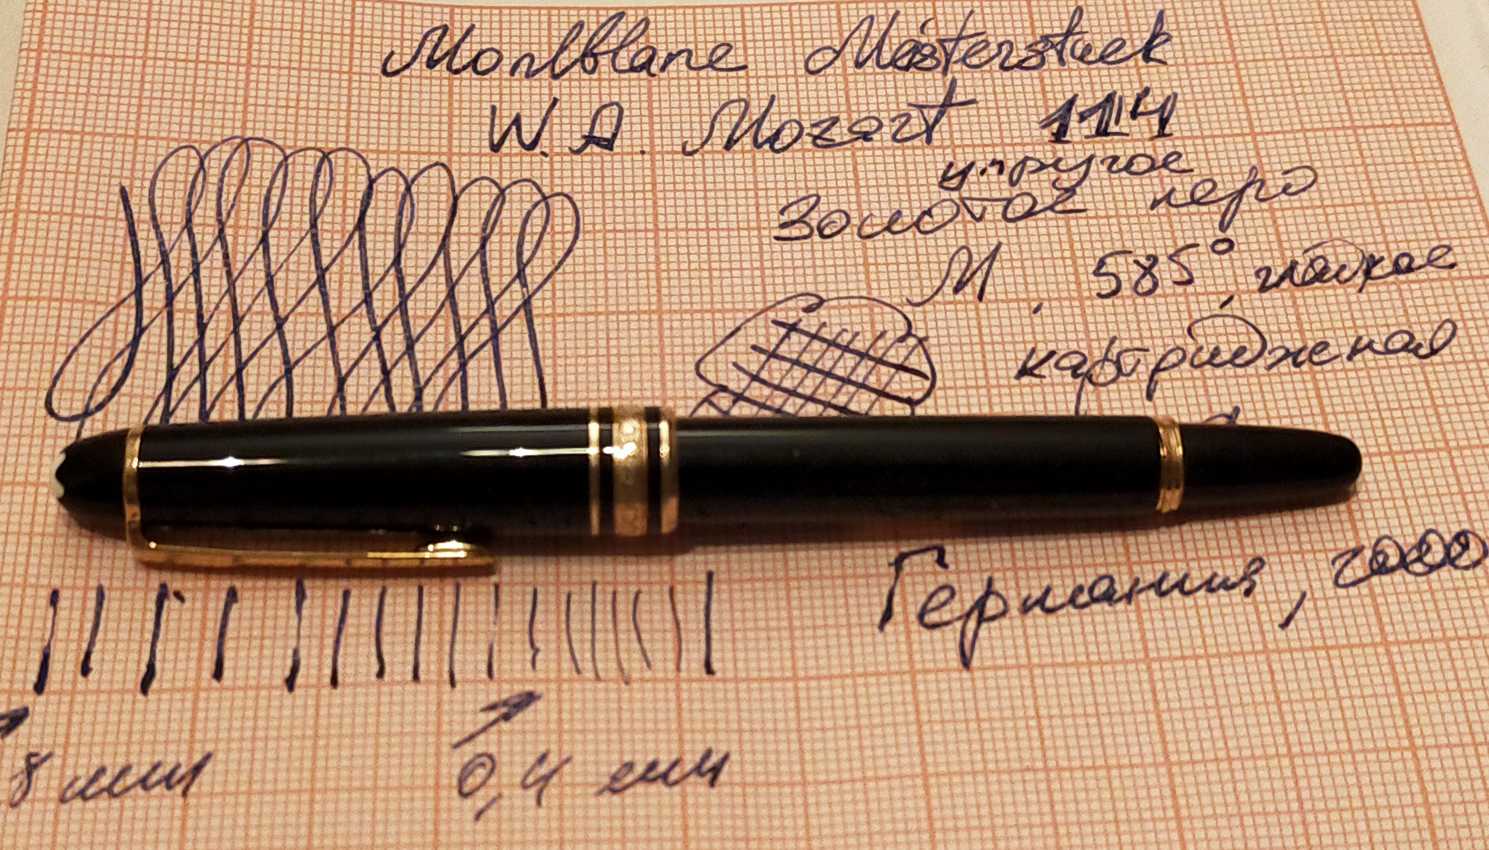 Montblanc Meisterstuck
W. A. Mozart 114
упругое
Золотое перо
М, 585°, гладкое
картриджная
Германия, 2000
8 мм
0,4 мм